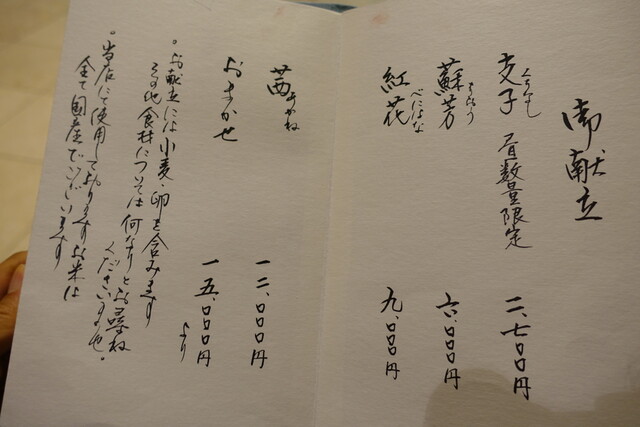 御献立
支子 くちなし 昼数量限定 二、七〇〇円
蘇芳 すおう 六、〇〇〇円
紅花 べにはな 九、〇〇〇円
茜 あかね 一二、〇〇〇円
おまかせ 一五、〇〇〇円より
。お献立には小麦・卵を含みます
その他食材については何なりとお尋ね
くださいませ。
。当店にて使用しておりますお米は
全て国産でございます